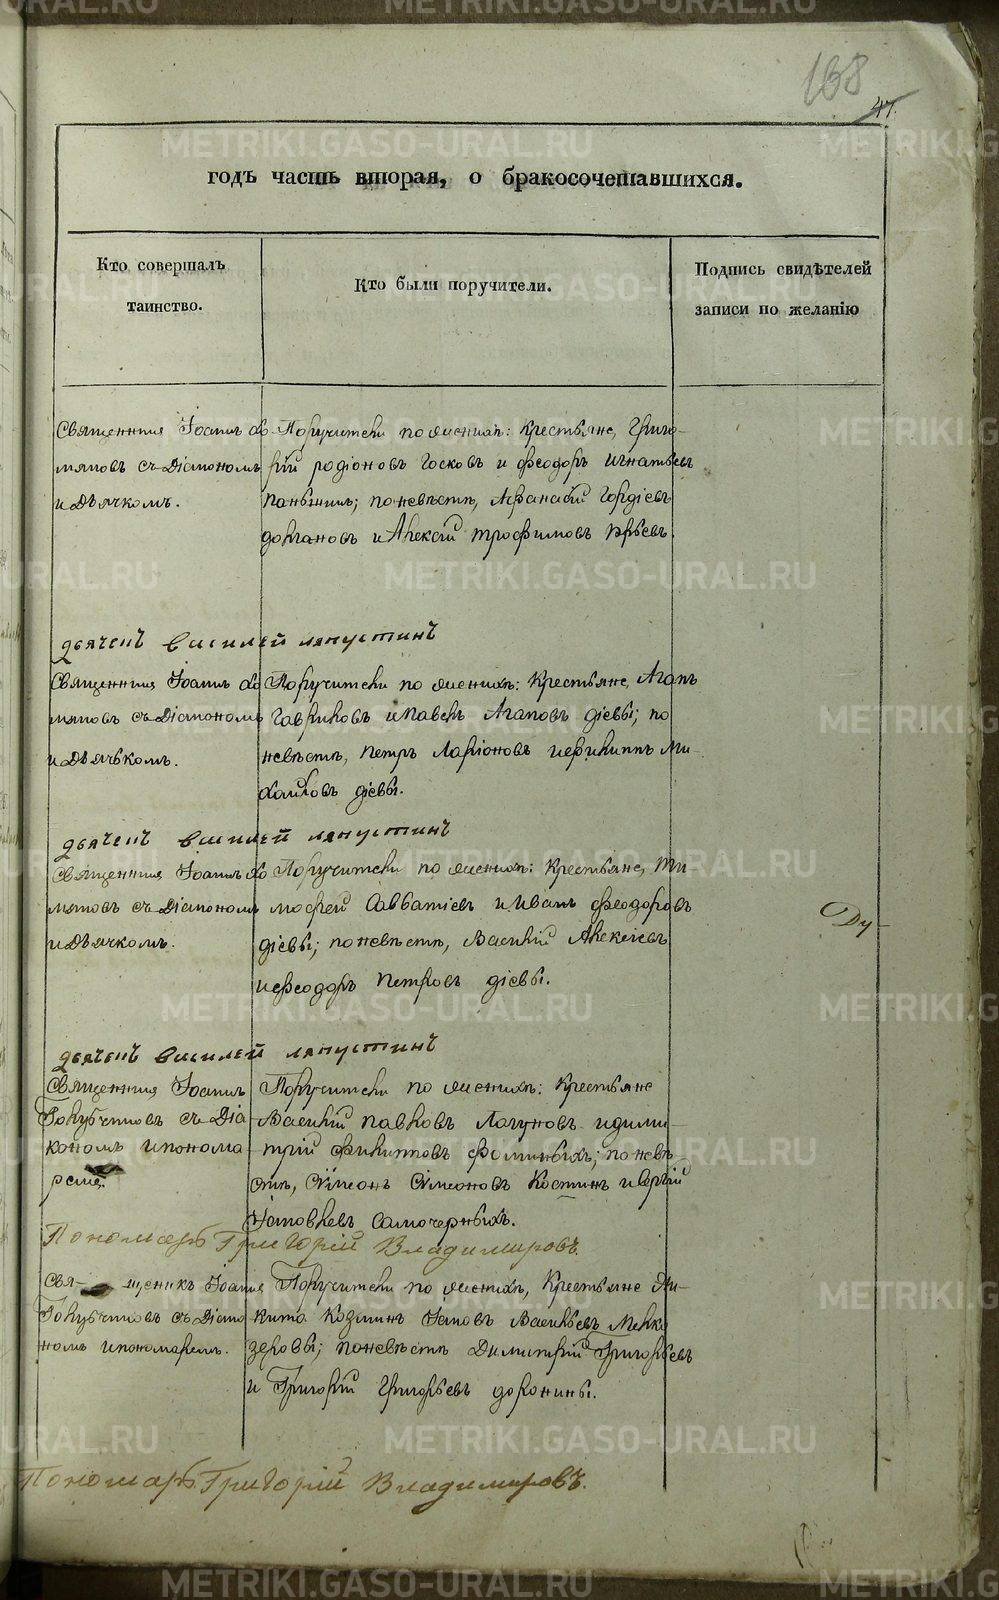 168
47.
годъ часть вторая, о бракосочетавшихся.
Кто совершалъ
таинство.
Кто были поручители.
Подпись свидѣтелей
записи по желанію
Священникъ Іоаннъ Хо
мяковъ съ Діакономъ
и Дьячкомъ.
Поручители по женихѣ: Крестьяне, Григо-
рій родіоновъ Госковъ и феодоръ Игнатьевъ
Паньшинъ; поневѣстѣ, Афанасій Гордіевъ
долгановъ и Алексій трофимовъ
дьячекъ василей ляпустинъ
Священникъ Іоаннъ Хо
мяковъ съ Діакономъ
и Дьячькомъ.
Поручители по женихѣ: Крестьяне, Агапъ
Гавриловъ и Павелъ Агаповъ дієвы; по
невѣстѣ, петръ Ларіоновъ и филиппъ Ми-
хайловъ дієвы.
дьячекъ василей ляпустинъ
Священникъ Іоаннъ Хо
мяковъ съ Діакономъ
и Дьячкомъ.
Поручители по женихѣ: Крестьяне, Ти
мофей Савватіевъ и Иванъ феодоровъ
дієвы; поневѣстѣ, Василій Алексіевъ
и феодоръ Петровъ дієвы.
дьячекъ василей ляпустинъ
Священникъ Іоаннъ
Голубчиковъ съ Діа
кономъ и понома
ремъ.
Поручители по женихѣ: Крестьяне
Василій павловъ Лагуновъ и дими-
трій филиповъ фоминыхъ; поневѣ-
стѣ, Сімеонъ Сімеоновъ Костинъ и Сергій
Іаковлевъ Самочерныхъ.
Пономарь Григорій Владимировъ.
Свя- щеникъ Іоаннъ
Голубчиковъ съ Діако
номъ и пономаремъ.
Поручители по женихѣ, Крестьяне Ни-
кита Козминъ Іаковъ Васильевъ Мелко
зеровы; поневѣстѣ Димитрій Григорьевъ
и Григорій Григорьевъ доронины.
Пономарь Григорій Владимировъ.
METRIKI.GASO-URAL.RU